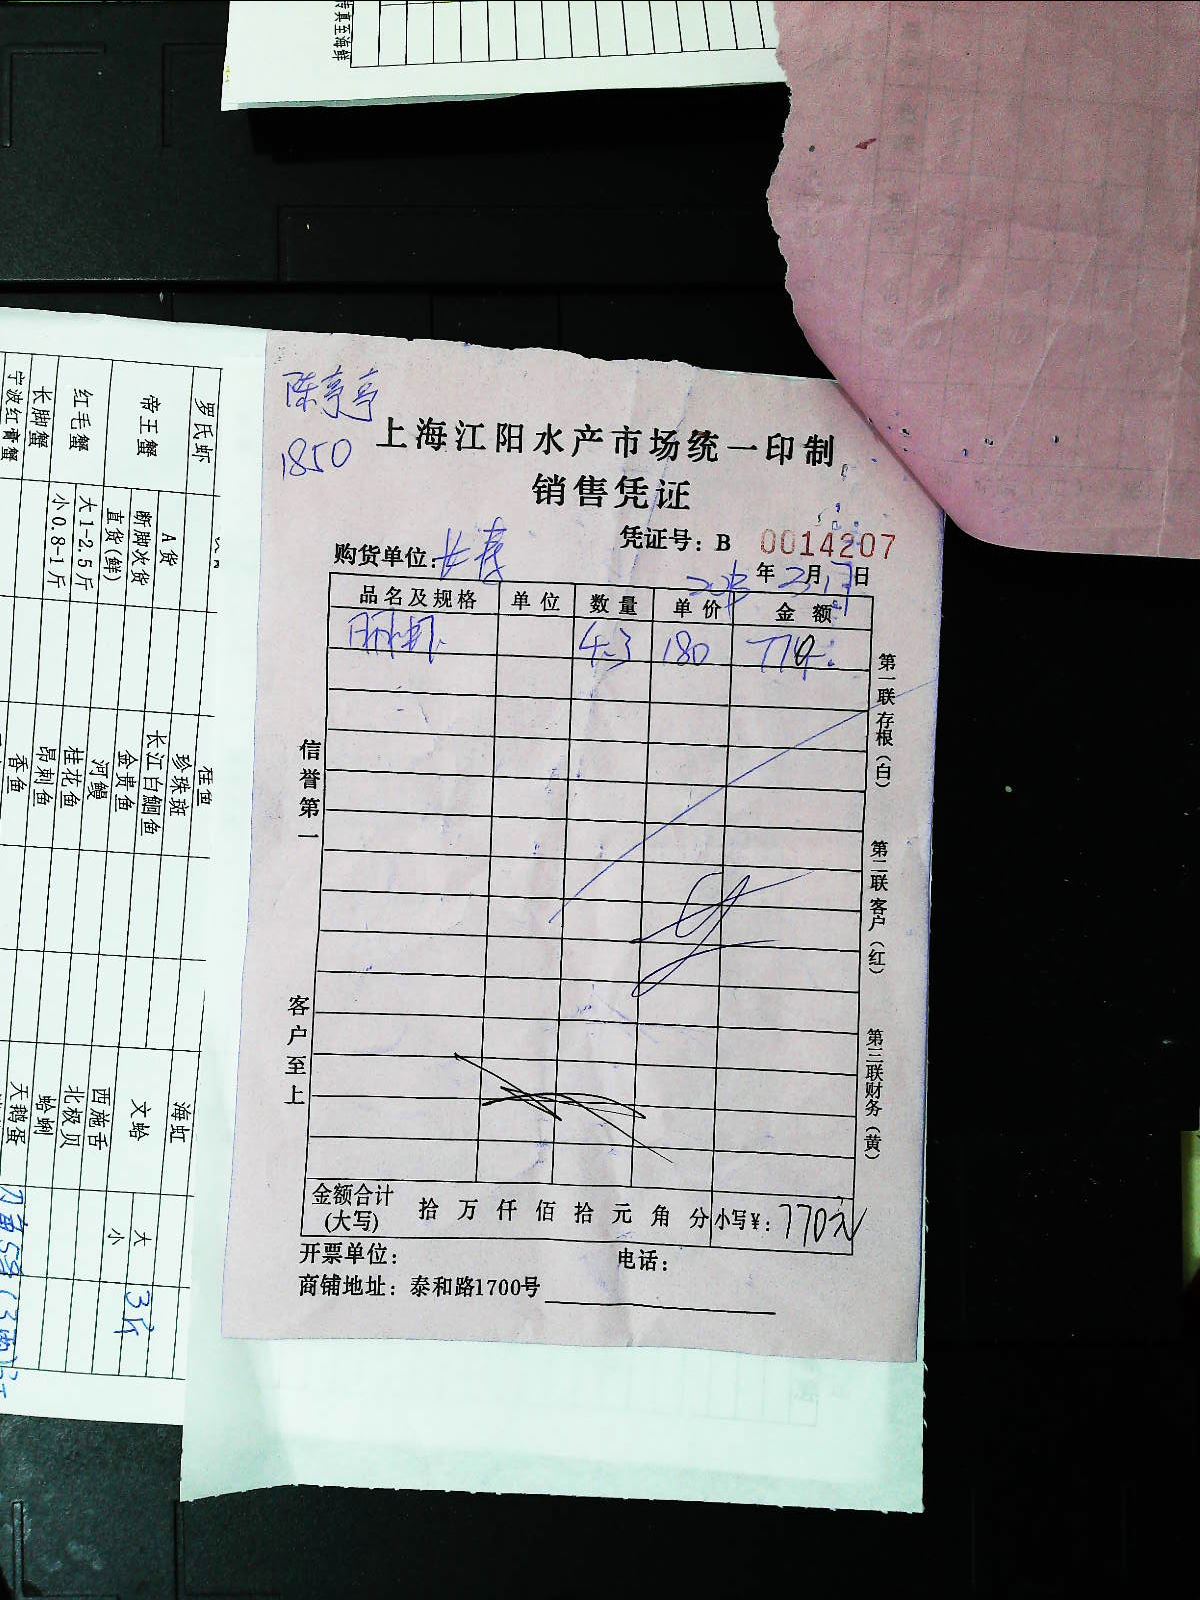 传真至海鲜
陈亭亭
1850
上海江阳水产市场统一印制
销售凭证
凭证号：B 0014207
购货单位：
年 2月17日
品名及规格 单位 数量 单价 金额
4.3 180 770
信誉第一
客户至上
第一联存根（白）
第二联客户（红）
第三联财务（黄）
金额合计(大写) 拾 万 仟 佰 拾 元 角 分 小写¥：770元
开票单位： 电话：
商铺地址：泰和路1700号
罗氏虾
帝王蟹 A货
断脚次货
直货(鲜)
红毛蟹 大1-2.5斤
小0.8-1斤
长脚蟹
宁波红膏蟹
桂鱼
珍珠斑
长江白鮰鱼
金贵鱼
河鳗
桂花鱼
昂刺鱼
香鱼
海虹
文蛤 大 3斤
小
西施舌
北极贝
蛤蜊
天鹅蛋